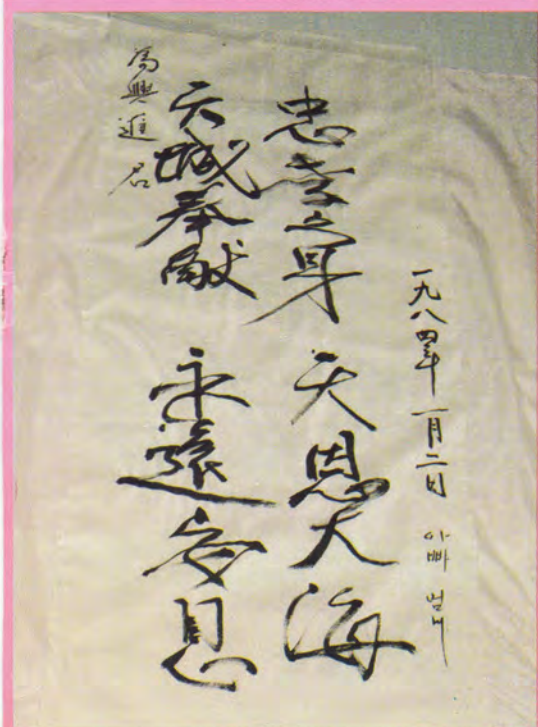 一九八四年 一月二日 아빠 엄마
忠孝之身 天恩大海
天城奉献 永遠安息
為興進君